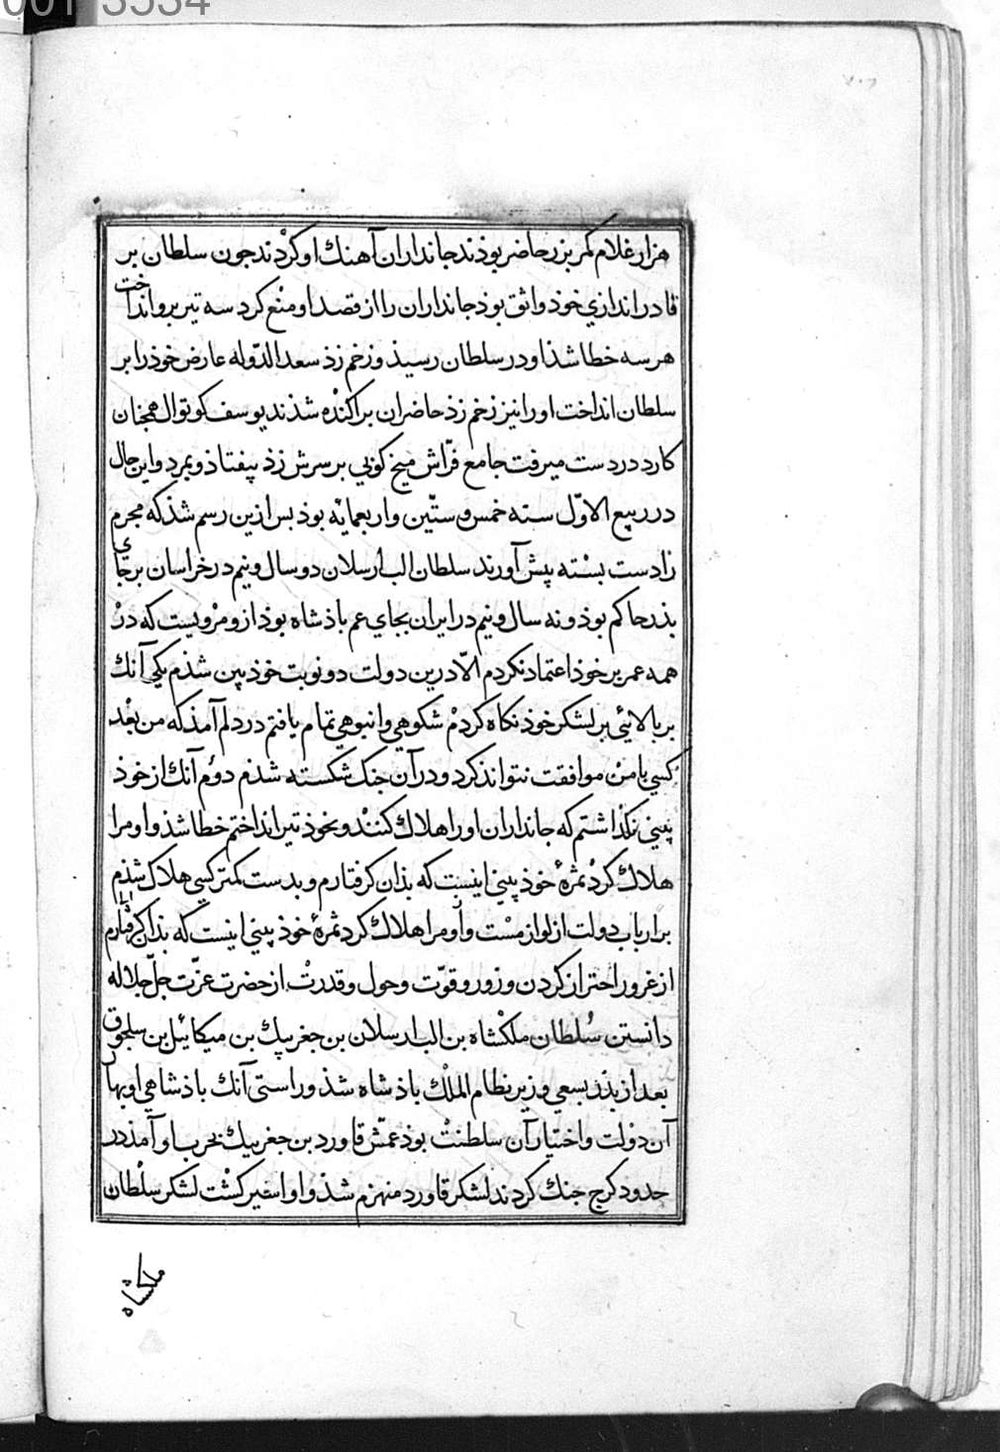 001 3534
هزار غلام کمر بزر حاضر بوذند جانداران آهنك او کردند جون سلطان بر
قادر اندازي خوذ واثق بوذ جانداران را از قصد او منع کرد سه تیر برو انداخت
هر سه خطا شذ او در سلطان رسیذ و زخم زذ سعد الدّوله عارض خوذ را بر
سلطان انداخت او را نیز زخم زذ حاضران براکنده شذند یوسف کوتوال همجنان
کارد در دست میرفت جامع فرّاش میخ کوبی بر سرش زذ بیفتاذ و بمرد و این حال
در ربیع الاوّل سنه خمس و ستّین و اربعمایه بوذ بس ازین رسم شذ که مجرم
را دست بسته پیش آورند سلطان الب ارسلان دو سال و نیم در خراسان بر جای
بذر حاکم بوذ و نه سال و نیم در ایران بجاي عم باذشاه بوذ ازو مرویست که در
همه عمر بر خوذ اعتماد نکردم الّا درین دولت دو نوبت خوذ بین شذم یکی آنك
بر بالائی بر لشکر خوذ نکاه کردم شکوهي و انبوهي تمام یافتم در دلم آمذ که من بعد
کسي با من موافقت نتواند کرد و در آن جنك شکسته شذم دوم آنك از خوذ
بیني نکذاشتم که جانداران او را هلاك کنند و بخوذ تیر انداختم خطا شذ و او مرا
هلاك کرد ثمرهٔ خوذ بیني اینست که بذان کرفتارم و بدست کمتر کسي هلاك شذم
بر ارباب دولت از لوازمست و او مرا هلاك کرد ثمرهٔ خوذ بیني اینست که بذان کرفتارم
از غرور احتراز کردن و زور و قوّت و حول و قدرت از حضرت عزّت جلّ جلاله
دانستن سُلطان ملکشاه بن الب ارسلان بن جغر بیك بن میکائیل بن سلجوق
بعد از بذر بسعي وزیر نظام الملك باذشاه شذ و راستی آنك باذشاهي او بهار
آن دولت و اختیار آن سلطنت بوذ عمّش قاورد بن جغر بیك بحرب او آمذ در
حدود کرج جنك کردند لشکر قاورد منهزم شذ و او اسیر کشت لشکر سلطان
ملکشاه